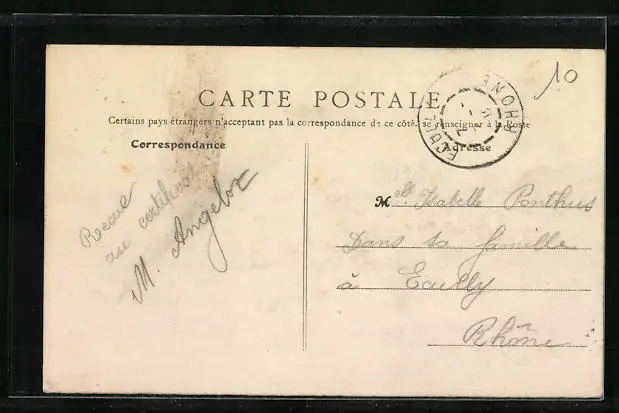 10
CARTE POSTALE
Certains pays étrangers n'acceptent pas la correspondance de ce côté, se renseigner à la Poste
Correspondance
Adresse
ECULLY
RHONE
au certificat
M. Angelot
Melle Isabelle Ponthus
Dans sa famille
à Ecully
Rhône